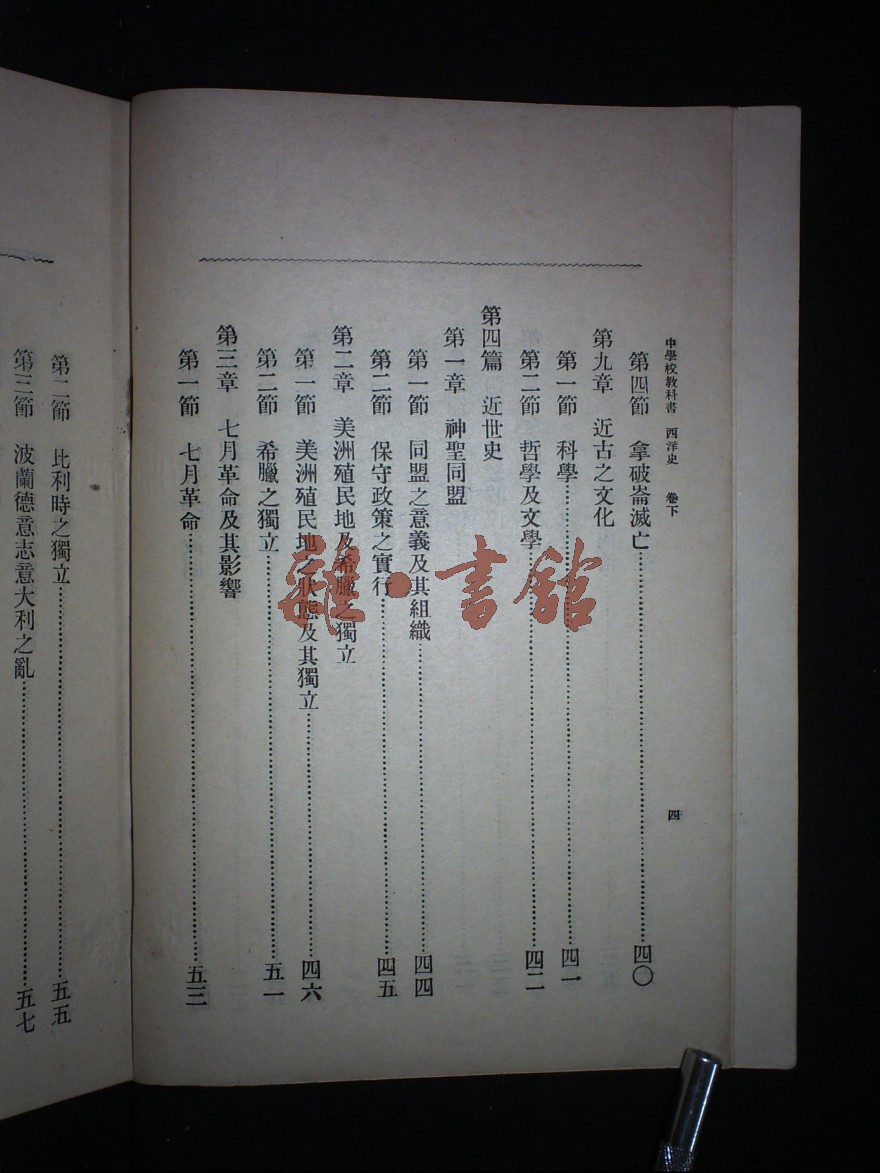 中學校教科書 西洋史 卷下 四
第四節 拿破崙滅亡……四〇
第九章 近古之文化
第一節 科學……四一
第二節 哲學及文學……四二
第四篇 近世史
第一章 神聖同盟
第一節 同盟之意義及其組織……四四
第二節 保守政策之實行……四五
第二章 美洲殖民地及希臘之獨立
第一節 美洲殖民地之狀態及其獨立……四六
第二節 希臘之獨立……五一
第三章 七月革命及其影響
第一節 七月革命……五三
第二節 比利時之獨立……五五
第三節 波蘭德意志意大利之亂……五七
雜·書館